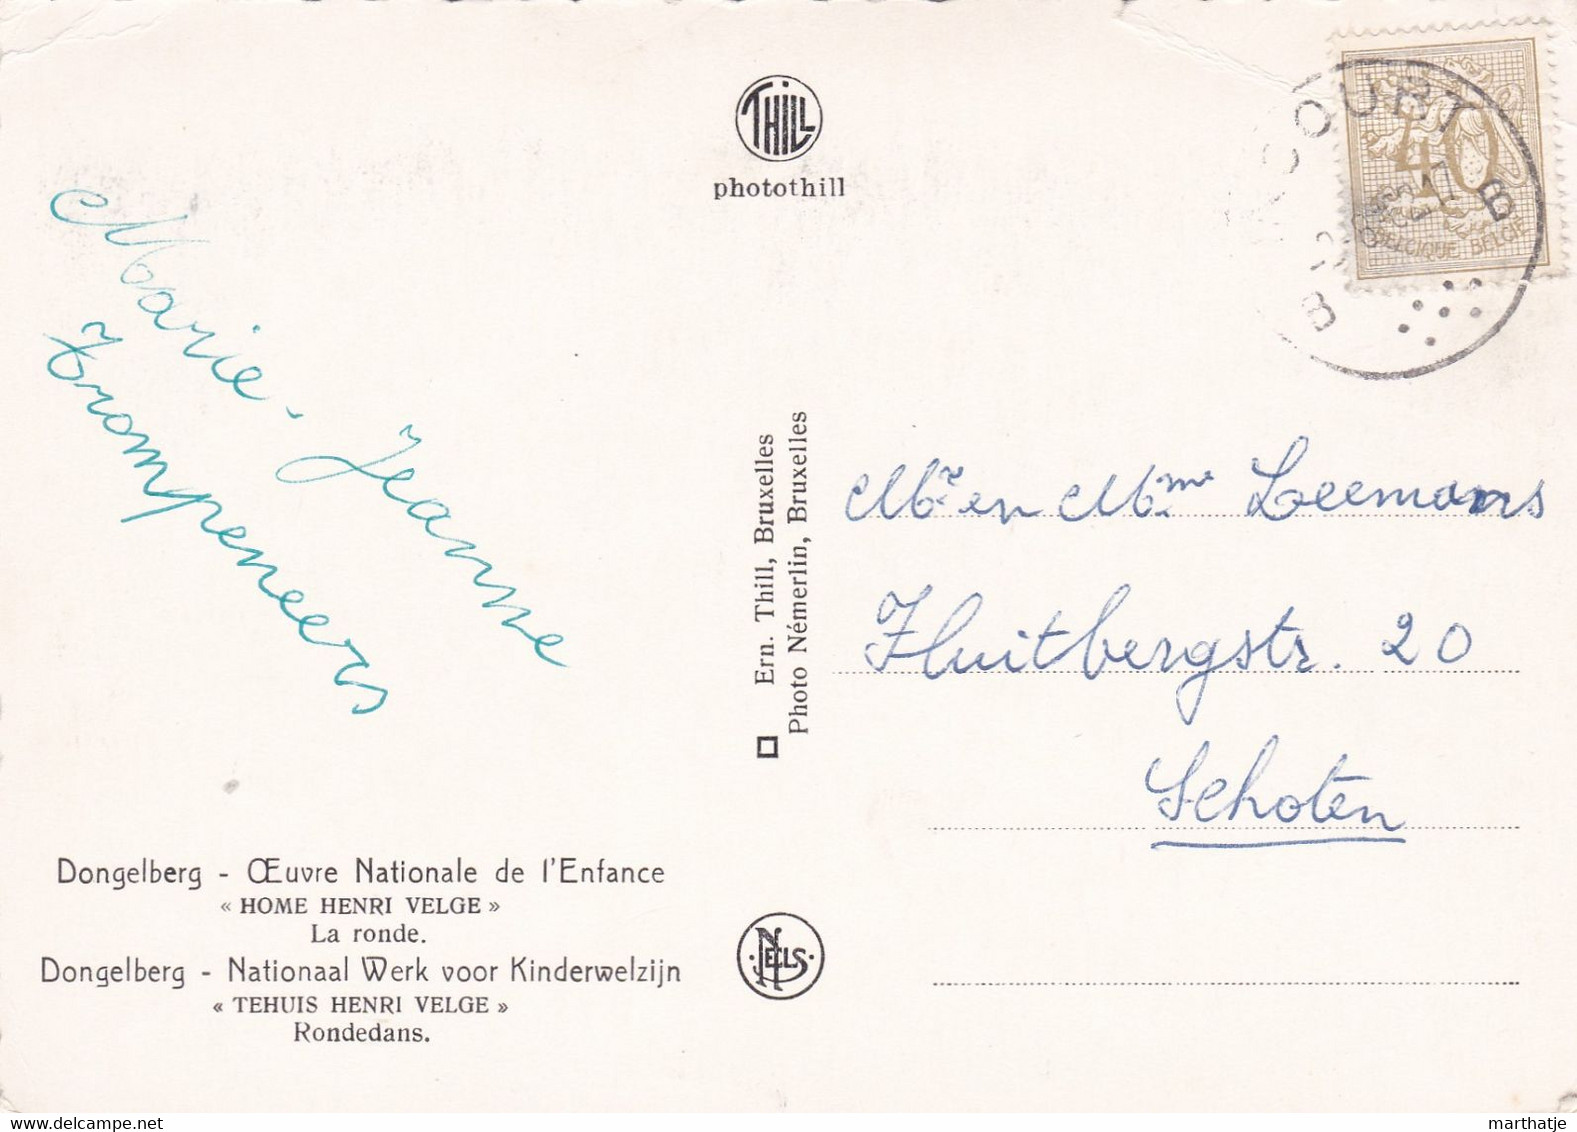 THILL
photothill
Marie-Jeanne
Trompeneers
Ern. Thill, Bruxelles
Photo Némerlin, Bruxelles
40
BELGIQUE BELGIE
B
Mr en Mme Leemans
Fluitbergstr. 20
Schoten
Dongelberg - Œuvre Nationale de l'Enfance
« HOME HENRI VELGE »
La ronde.
Dongelberg - Nationaal Werk voor Kinderwelzijn
« TEHUIS HENRI VELGE »
Rondedans.
NELS
delcampe.net
marthatje